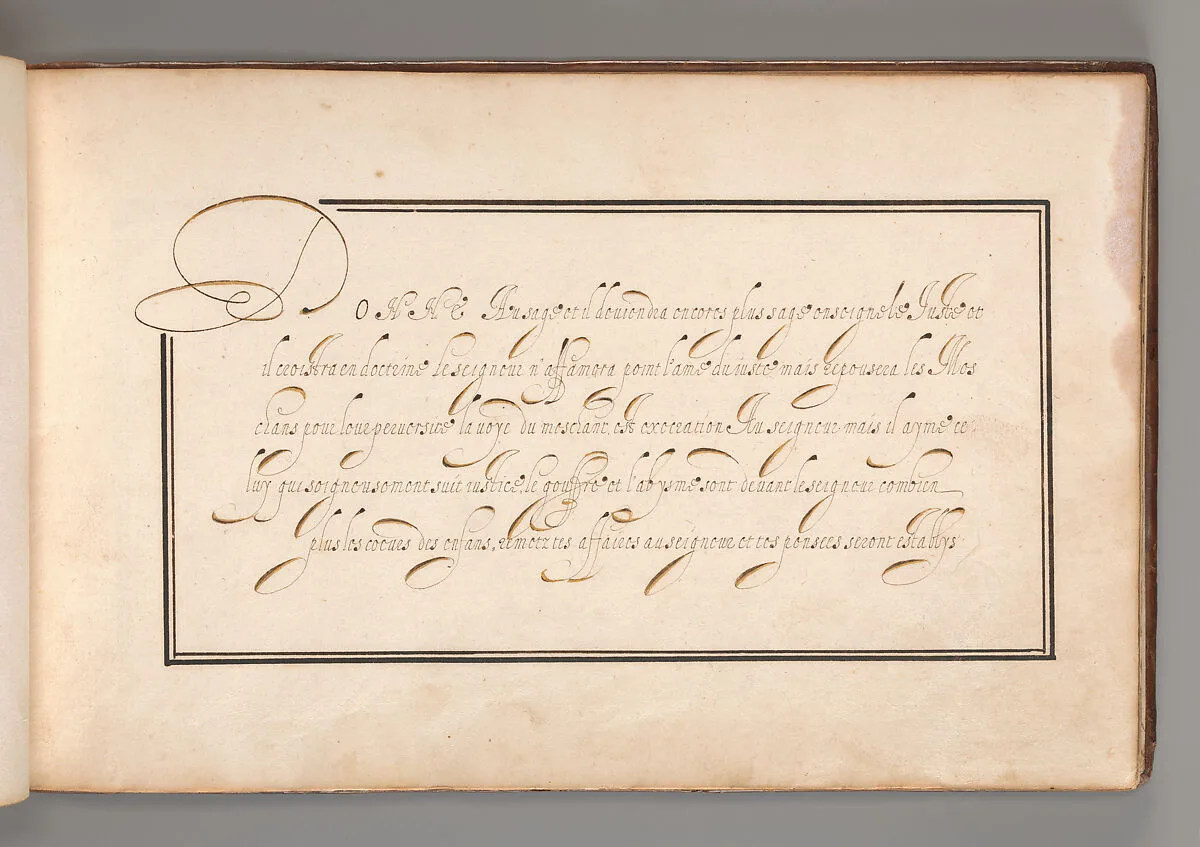 DONNE Au sage et il deviendra encores plus sage enseigne le Juste et
il croistra en doctrine le seigneur n'affamera point l'ame du iuste mais repousera les Mes
chans pour leur perversite la voye du meschant est execration Au seigneur mais il ayme ce
luy qui soigneusement suit iustice, le gouffre et l'abysme sont devant le seigneur combien
plus les coeurs des enfans, remetz tes affaires au seigneur et tes pensees seront establys